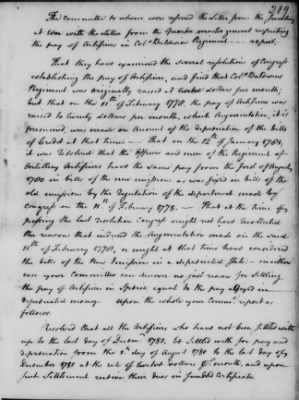 219
The Committee to whom was referred the Letter from the
at War with the Letter from the Quarter master general respecting
the pay of Artificers in Col.º Baldwins Regiment — report,
That they have examined the several resolutions of Congress
establishing the pay of Artificers, and find that Col.º Baldwins
Regiment was originally raised at twelve dollars per month;
but that on the 11th of February 1778, the pay of Artificers was
raised to twenty dollars per month, which Augmentation, it is
presumed, was made on Account of the depreciation of the bills
of Credit at that time — That on the 12th of January 1781,
it was resolved that the Officers and men of the Regiment of
Artillery Artificers have the same pay from the first of August
1780 in bills of the new emission as was fixed in bills of the
old emission by the regulation of the department made by
Congress on the 11th of February 1778. — That at the time of
passing the last resolution Congress might not have recollected
the reasons that induced the Augmentation made on the said
11th of February 1778, or might at that time have considered
the bills of the New Emission in a depreciated State — neither
can your Committee can discern no just reason for settling
the pay of Artificers in Specie equal to the pay in
depreciated money. Upon the whole your Comm.ee report as
follows
Resolved that all the Artificers who have not been settled with
up to the last day of Decem.r 1781, be settled with for pay and
depreciation from the day of August 1780 to the last day of
December 1781 at the rate of twelve dollars month, and upon
such Settlement receive their dues in funded Certificates